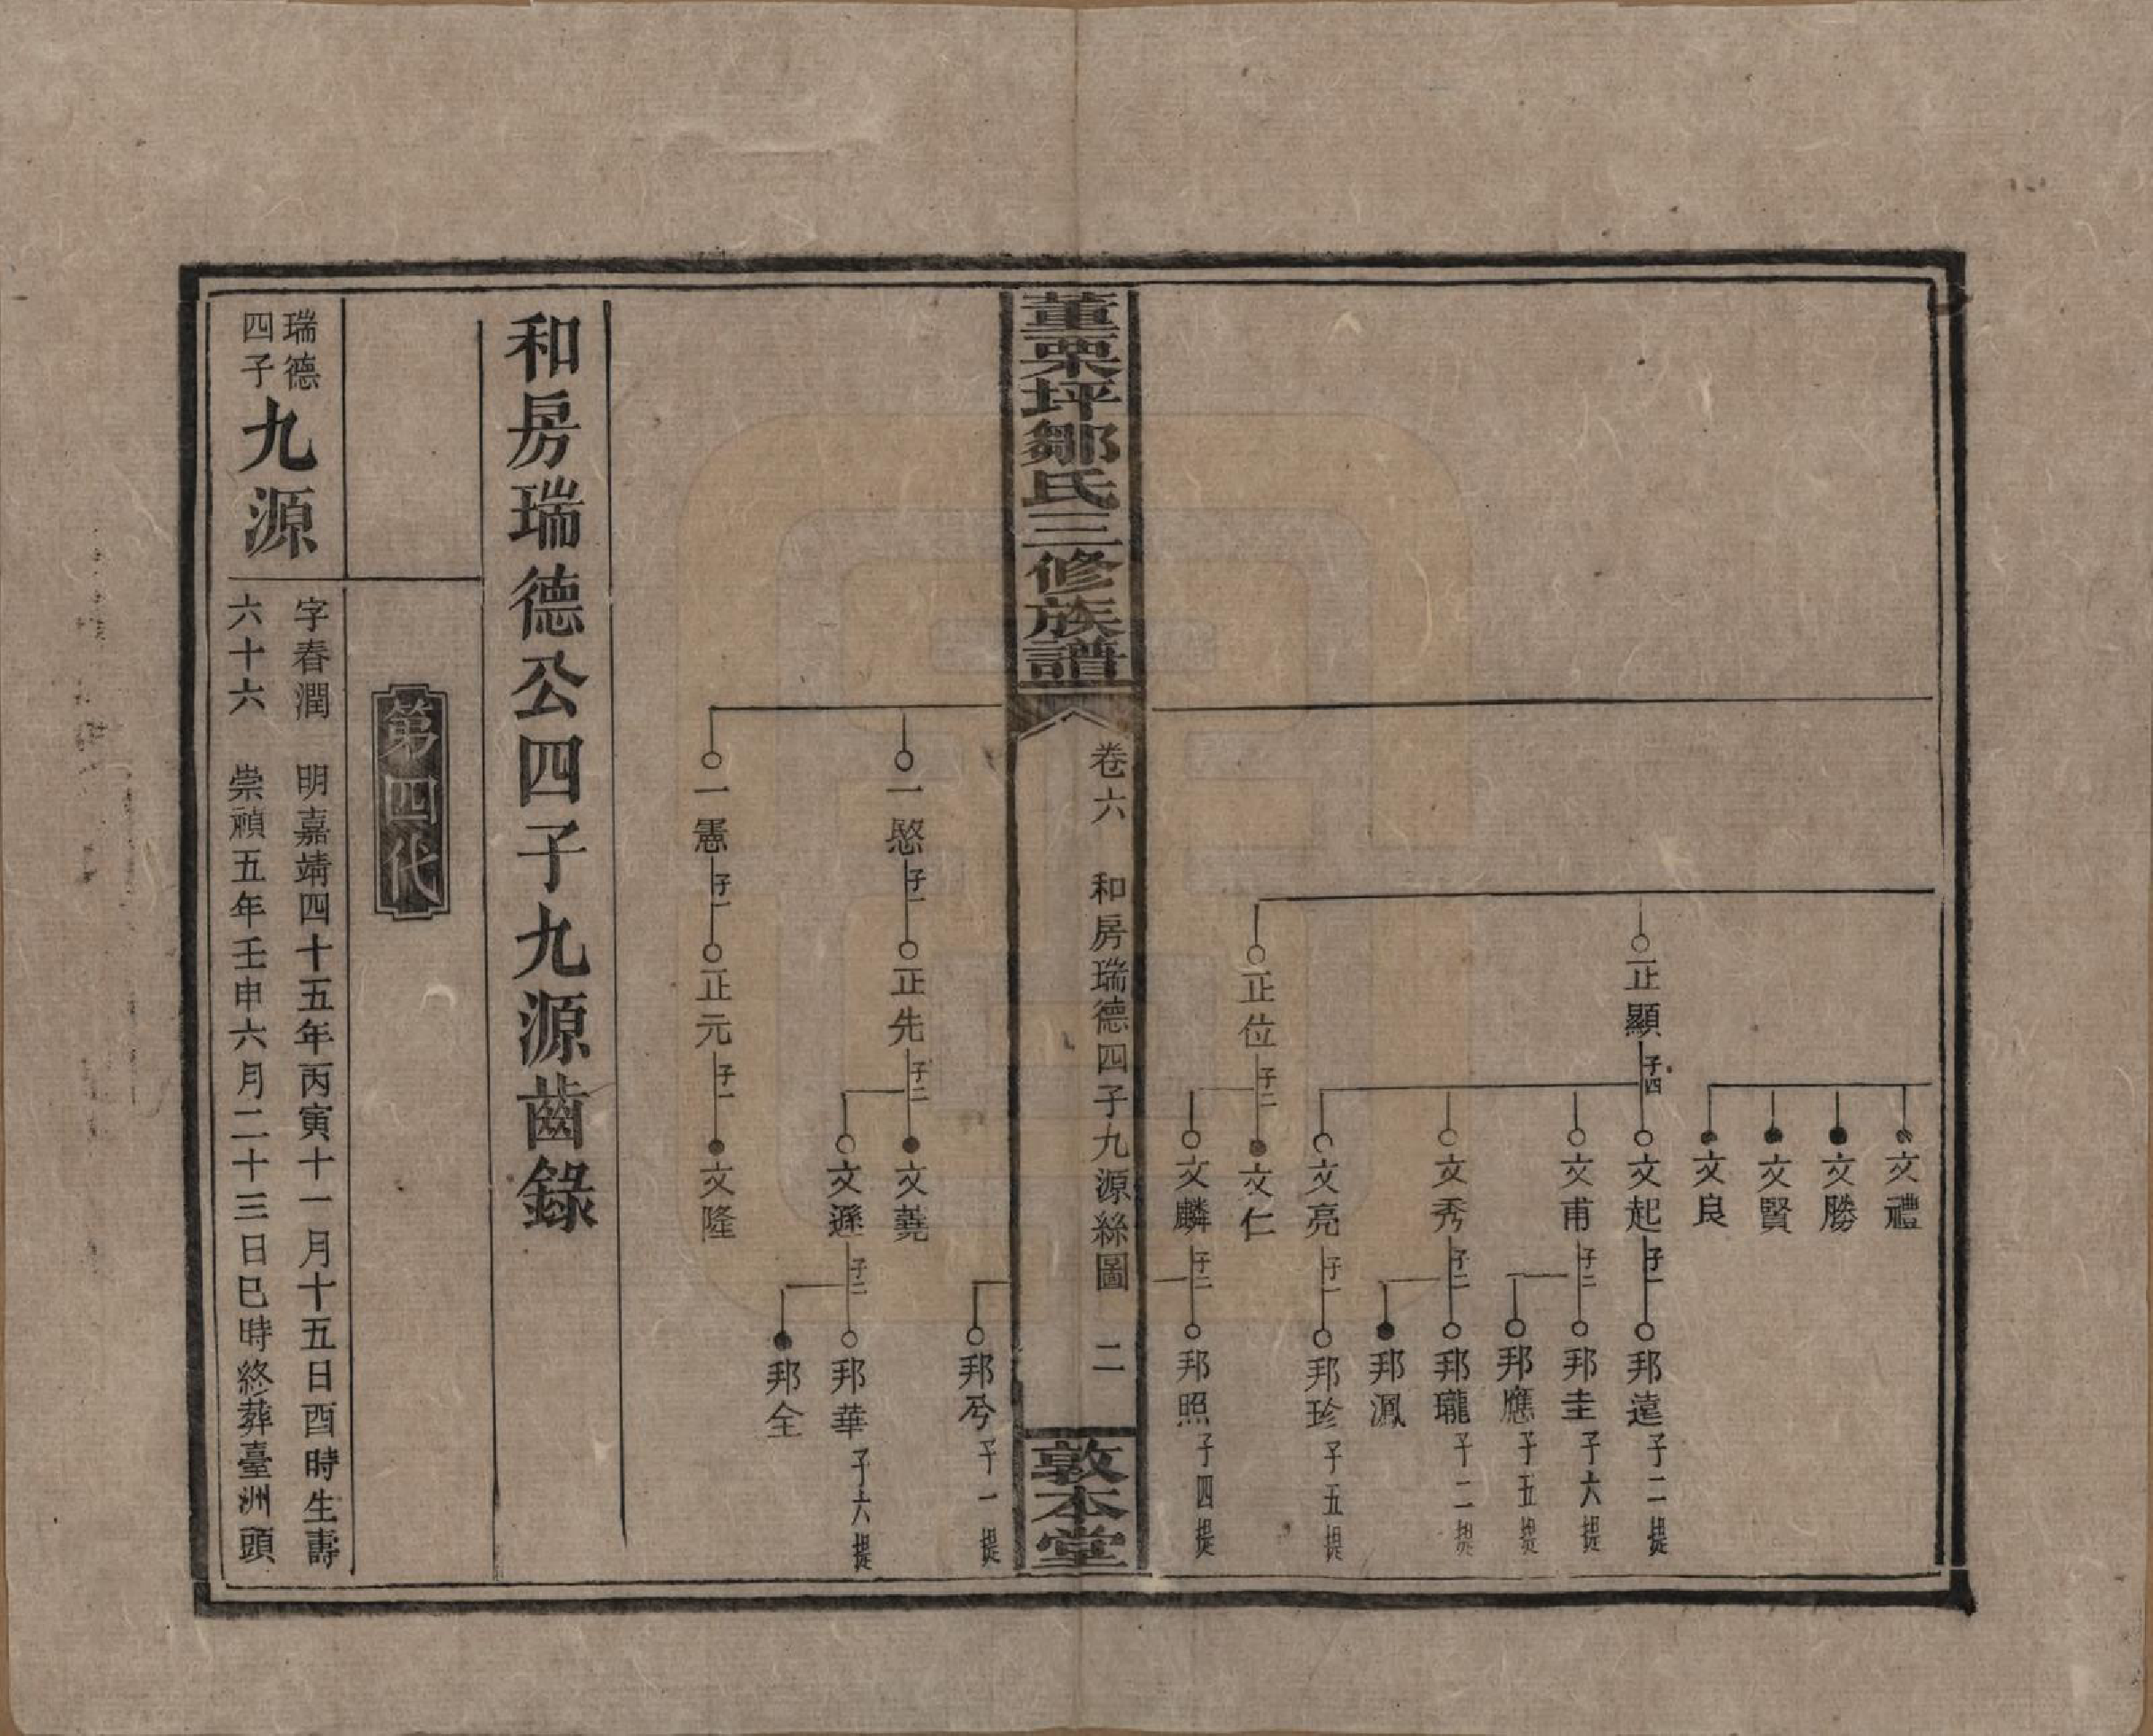 文禮
文勝
文賢
文良
正顯 子四
文起 子一
邦遠 子二提
文甫 子二
邦圭 子六提
邦應 子五提
文秀 子二
邦瓏 子二提
邦鳳
文亮 子一
邦珍 子五提
正位 子二
文仁
文麟 子二
邦照 子四提
董栗坪鄒氏三修族譜
卷六 和房瑞德四子九源絲圖 二
敦本堂
邦兮 子一提
一慜 子一
正先 子二
文蕘
文遜 子二
邦華 子六提
邦全
一憲 子一
正元 子一
文隆
和房瑞德公四子九源齒錄
第四代
瑞德
四子
九源
字春潤 明嘉靖四十五年丙寅十一月十五日酉時生壽
六十六 崇禎五年壬申六月二十三日巳時終葬臺洲頭